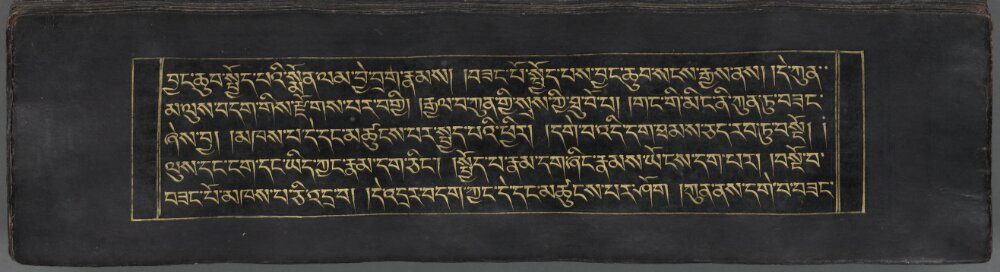 བྱང་ཆུབ་སྤྱོད་པའི་སྨོན་ལམ་བྱེ་བྲག་རྣམས། །བཟང་པོ་སྤྱོད་པས་བྱང་ཆུབ་སངས་རྒྱས་ནས། །དེ་ཀུན་
མ་ལུས་བདག་གིས་རྫོགས་པར་བགྱི། །རྒྱལ་བ་ཀུན་གྱི་སྲས་ཀྱི་ཐུ་བོ་པ། །གང་གི་མིང་ནི་ཀུན་ཏུ་བཟང་
ཞེས་བྱ། །མཁས་པ་དེ་དང་མཚུངས་པར་སྤྱད་པའི་ཕྱིར། །དགེ་བ་འདི་དག་ཐམས་ཅད་རབ་ཏུ་བསྔོ། །
ལུས་དང་ངག་དང་ཡིད་ཀྱང་རྣམ་དག་ཅིང་། །སྤྱོད་པ་རྣམ་དག་ཞིང་རྣམས་ཡོངས་དག་པར། །བསྔོ་བ་
བཟང་པོ་མཁས་པ་ཅི་འདྲ་བ། །དེ་འདྲར་བདག་ཀྱང་དེ་དང་མཚུངས་པར་ཤོག །ཀུན་ནས་དགེ་བ་བཟང་